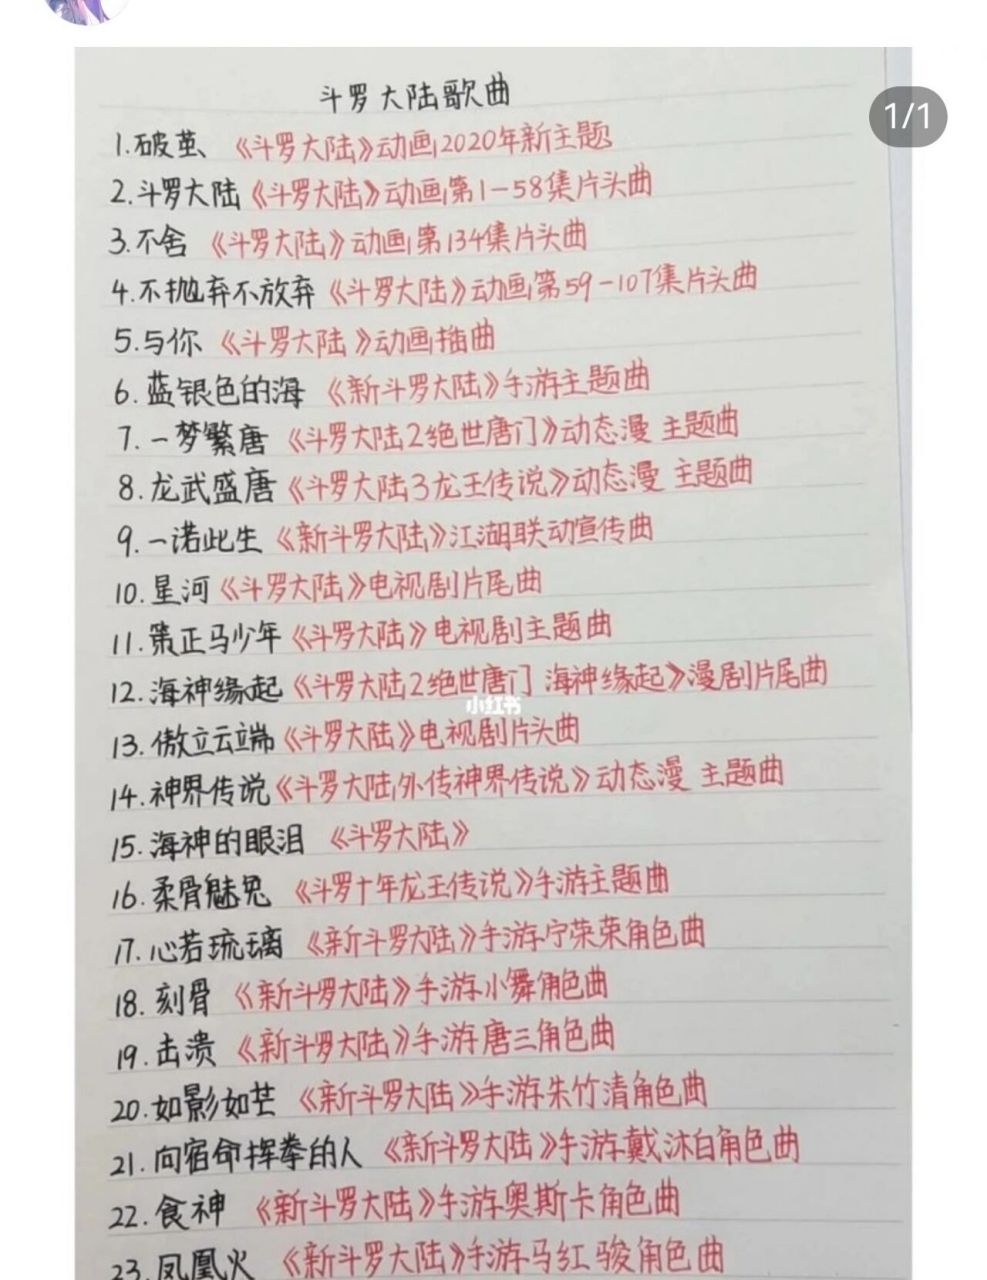 1/1
斗罗大陆歌曲
1.破茧、《斗罗大陆》动画2020年新主题
2.斗罗大陆《斗罗大陆》动画第1-58集片头曲
3.不舍 《斗罗大陆》动画第134集片头曲
4.不抛弃不放弃《斗罗大陆》动画第59-107集片头曲
5.与你 《斗罗大陆》动画插曲
6.蓝银色的海 《新斗罗大陆》手游主题曲
7.一梦繁唐 《斗罗大陆2绝世唐门》动态漫 主题曲
8.龙武盛唐《斗罗大陆3龙王传说》动态漫 主题曲
9.一诺此生《新斗罗大陆》江湖联动宣传曲
10.星河《斗罗大陆》电视剧片尾曲
11.策正马少年《斗罗大陆》电视剧主题曲
12.海神缘起《斗罗大陆2绝世唐门 海神缘起》漫剧片尾曲
小红书
13.傲立云端《斗罗大陆》电视剧片头曲
14.神界传说《斗罗大陆外传神界传说》动态漫 主题曲
15.海神的眼泪 《斗罗大陆》
16.柔骨魅兔 《斗罗十年龙王传说》手游主题曲
17.心若琉璃 《新斗罗大陆》手游宁荣荣角色曲
18.刻骨 《新斗罗大陆》手游小舞角色曲
19.击溃 《新斗罗大陆》手游唐三角色曲
20.如影如芒 《新斗罗大陆》手游朱竹清角色曲
21.向宿命挥拳的人 《新斗罗大陆》手游戴沐白角色曲
22.食神 《新斗罗大陆》手游奥斯卡角色曲
23.凤凰火 《新斗罗大陆》手游马红骏角色曲